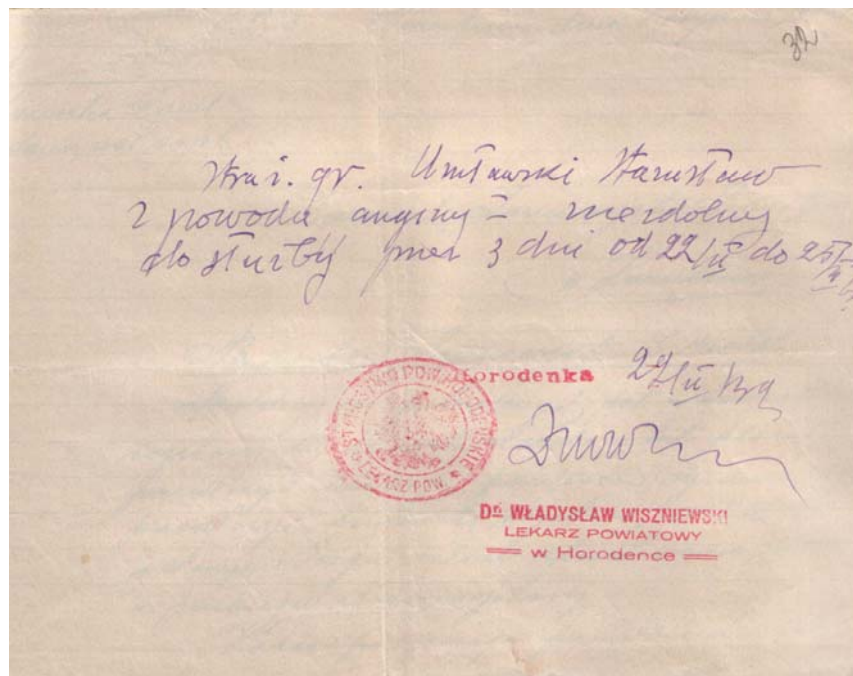 32
Straż. gr. Stanisław
z powodu anginy = niezdolny
do służby przez 3 dni od 22/II do 25/II
Horodenka
STAROSTWO POW. HORODEŃSKIE
LEKARZ POW.
Dr. WŁADYSŁAW WISZNIEWSKI
LEKARZ POWIATOWY
w Horodence